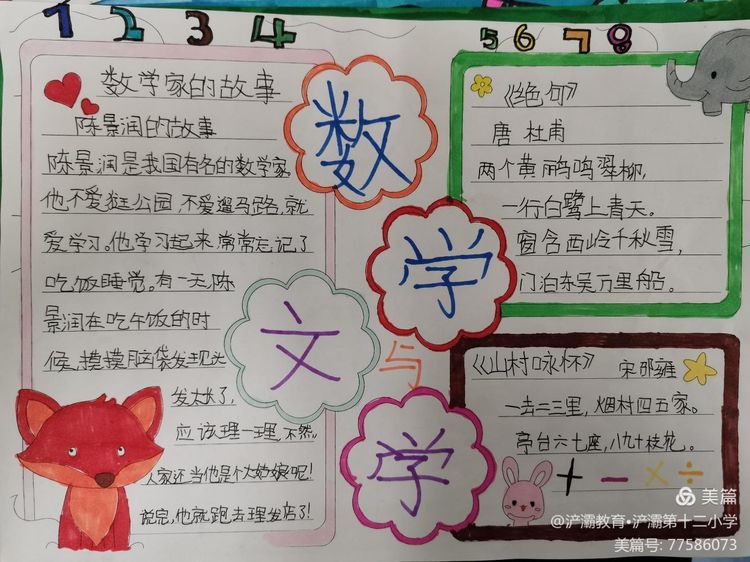 1 2 3 4
5 6 7 8
数学家的故事
陈景润的故事
陈景润是我国有名的数学家,
他不爱逛公园,不爱遛马路,就
爱学习。他学习起来常常忘记了
吃饭睡觉。有一天,陈
景润在吃午饭的时
候,摸摸脑袋发现头
发太长了,
应该理一理,不然,
人家还当他是个大姑娘呢!
说完,他就跑去理发店了!
数
学
文
与
学
《绝句》
唐 杜甫
两个黄鹂鸣翠柳,
一行白鹭上青天。
窗含西岭千秋雪,
门泊东吴万里船。
《山村咏怀》 宋邵雍
一去二三里,烟村四五家。
亭台六七座,八九十枝花。
+ - × ÷
美篇
@浐灞教育·浐灞第十二小学
美篇号: 77586073